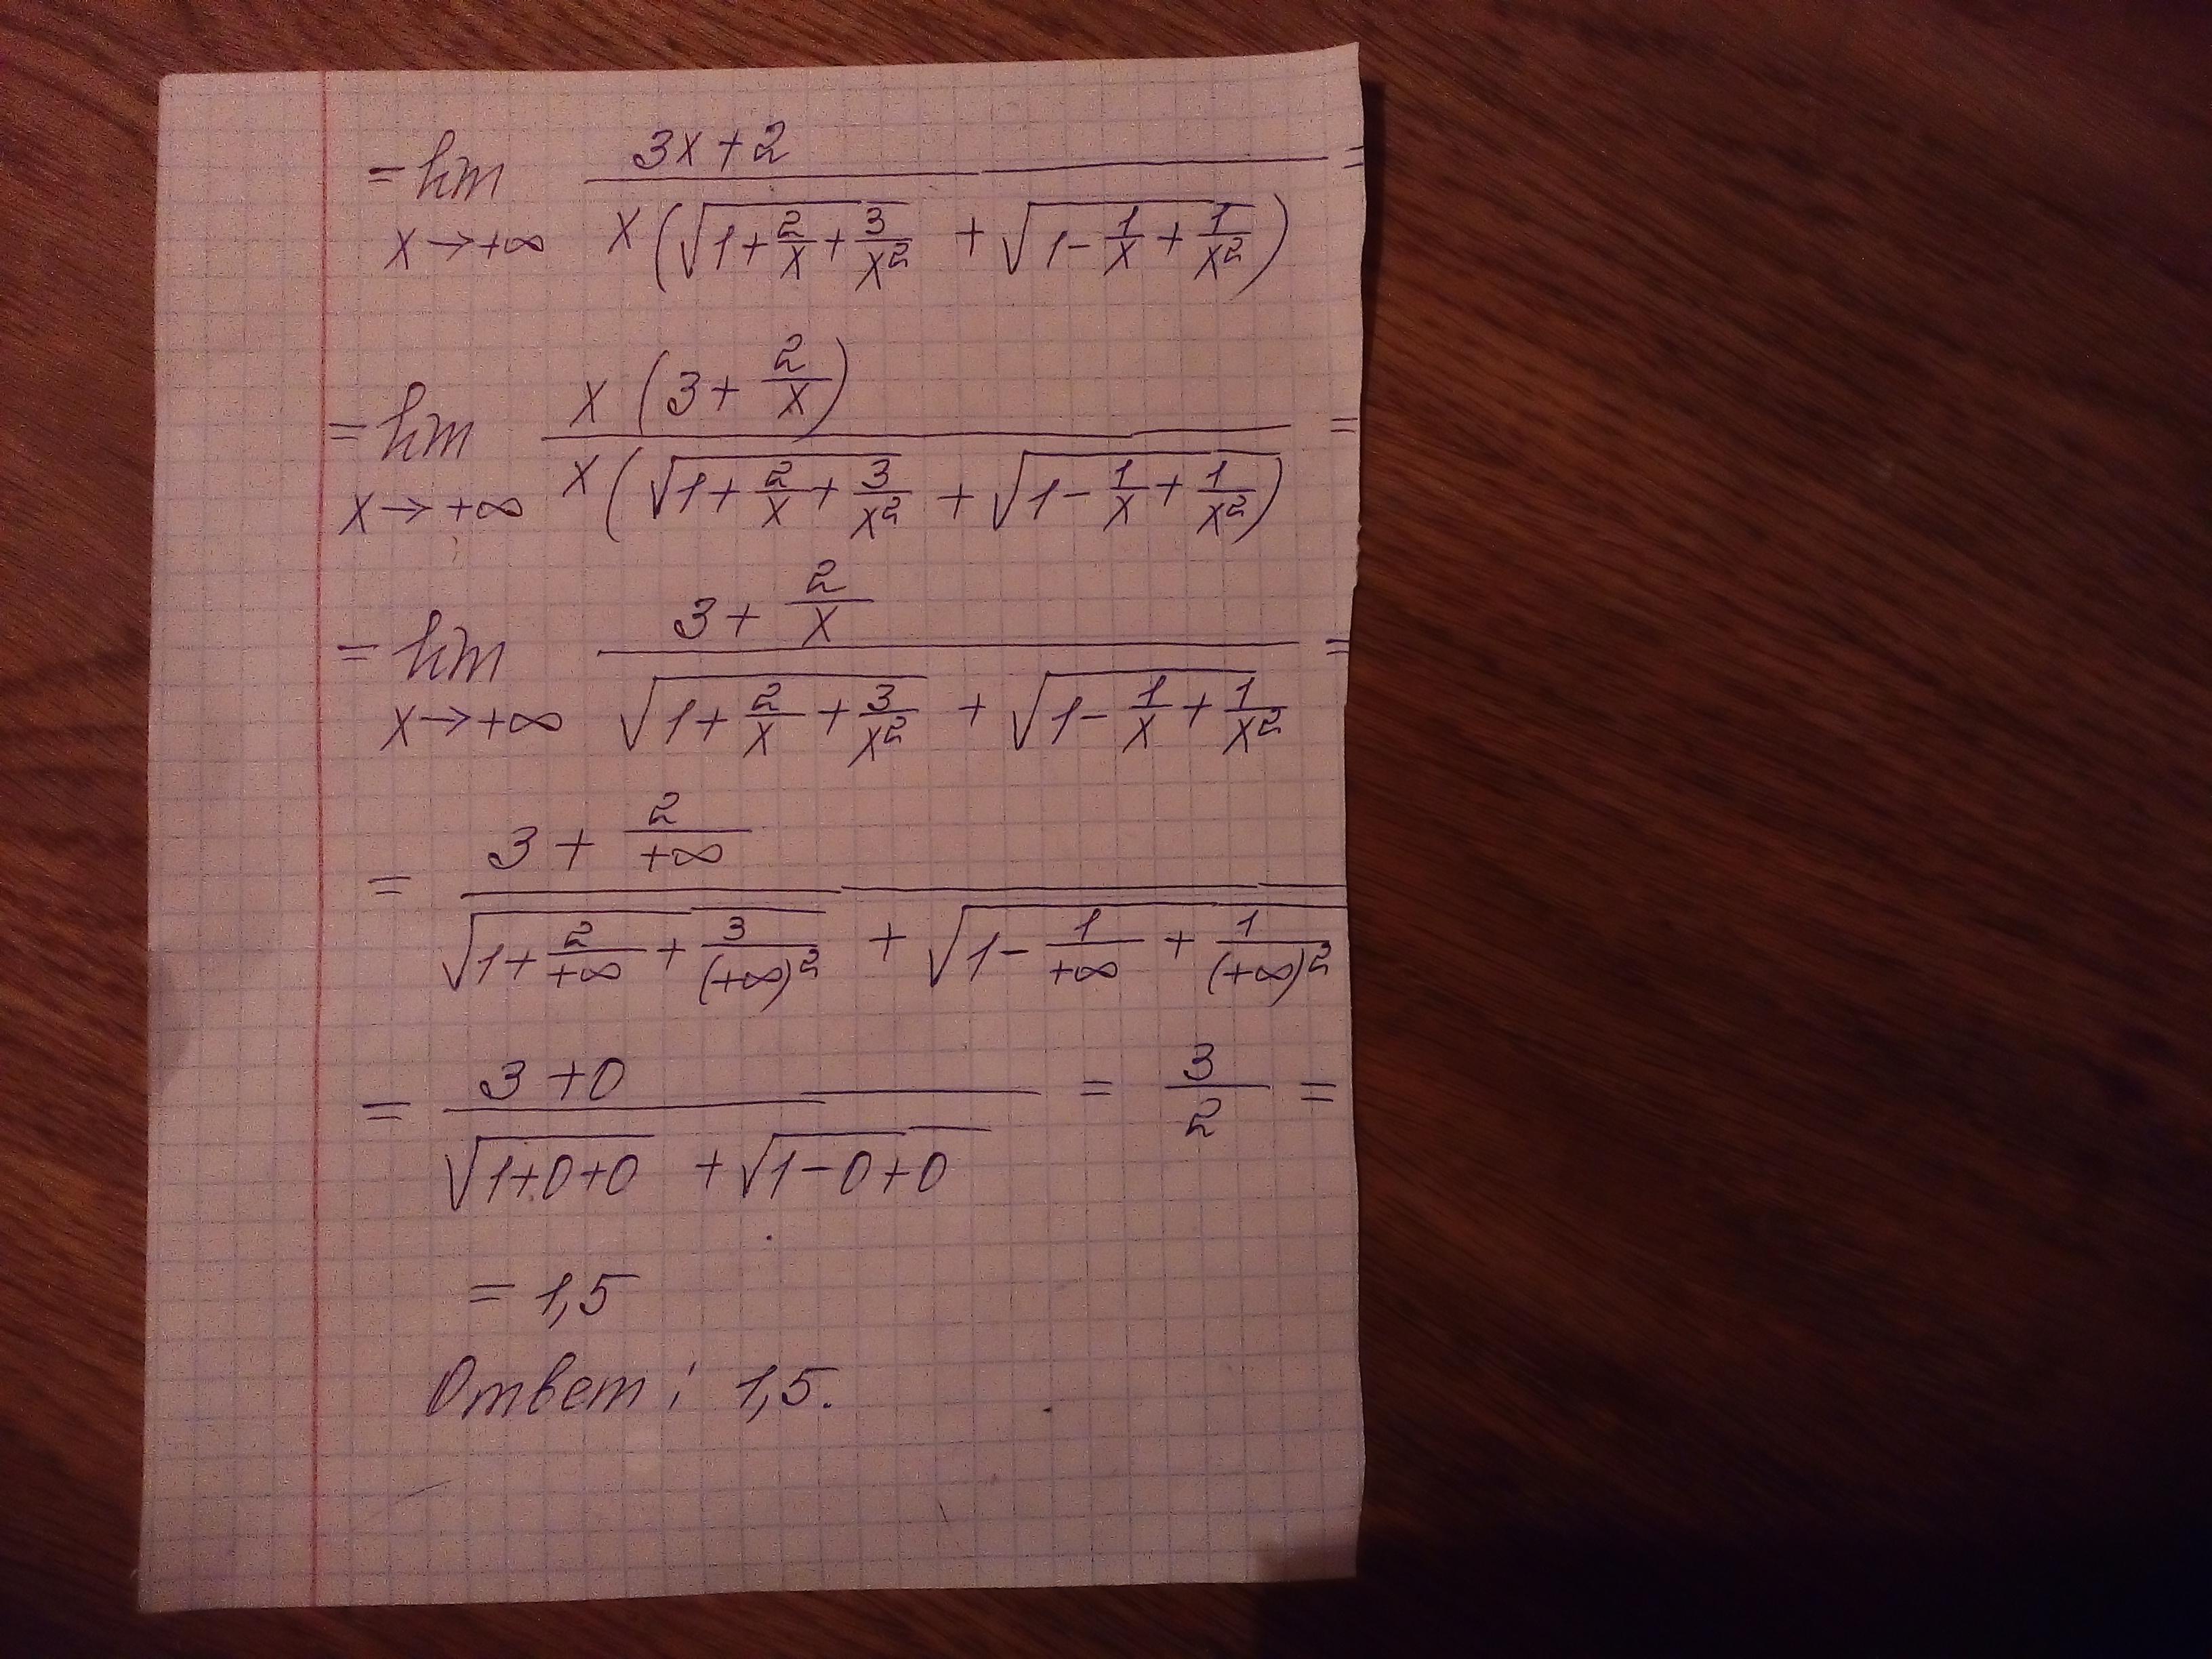 = lim x→+∞ (3x+2) / (x(√(1+2/x+3/x²) + √(1-1/x+1/x²))) =
= lim x→+∞ (x(3+2/x)) / (x(√(1+2/x+3/x²) + √(1-1/x+1/x²))) =
= lim x→+∞ (3+2/x) / (√(1+2/x+3/x²) + √(1-1/x+1/x²)) =
= (3+2/+∞) / (√(1+2/+∞+3/(+∞)²) + √(1-1/+∞+1/(+∞)²))
= (3+0) / (√(1+0+0) + √(1-0+0)) = 3/2 =
= 1,5
Ответ: 1,5.